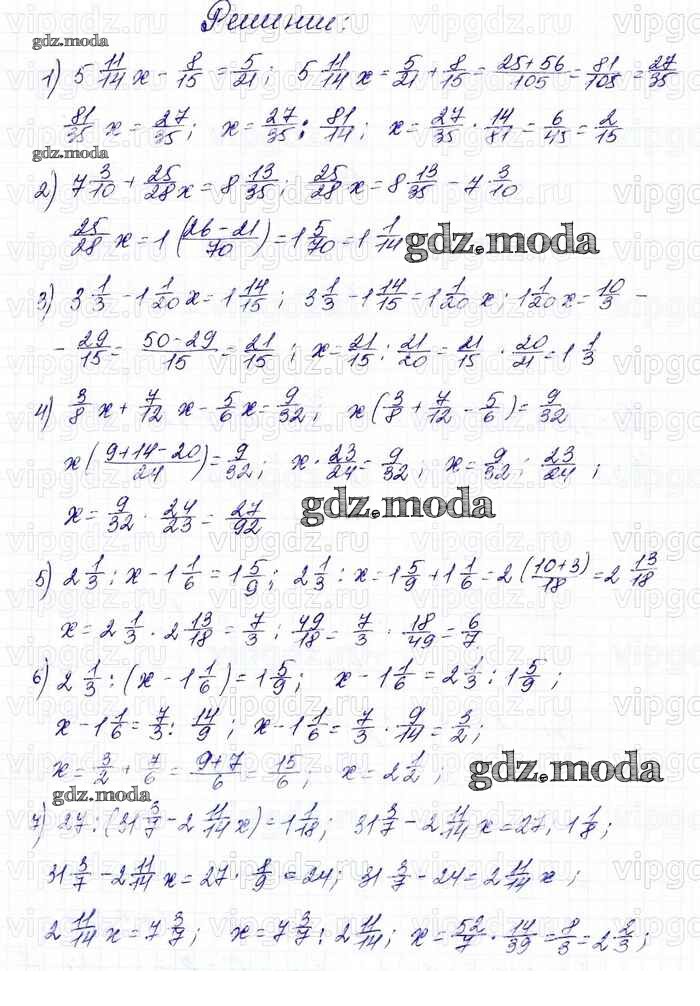 Решение:
gdz.moda
1) 5 11/14 x - 8/15 = 5/21; 5 11/14 x = 5/21 + 8/15 = (25+56)/105 = 81/105 = 27/35
81/35 x = 27/35; x = 27/35 : 81/14; x = 27/35 · 14/81 = 6/45 = 2/15
gdz.moda
2) 7 3/10 + 25/28 x = 8 13/35; 25/28 x = 8 13/35 - 7 3/10
25/28 x = 1 ((26-21)/70) = 1 5/70 = 1 1/14
gdz.moda
3) 3 1/3 - 1 1/20 x = 1 14/15; 3 1/3 - 1 14/15 = 1 1/20 x; 1 1/20 x = 10/3 -
- 29/15 = (50-29)/15 = 21/15; x = 21/15 : 21/20 = 21/15 · 20/21 = 1 1/3
4) 3/8 x + 7/12 x - 5/6 x = 9/32; x (3/8 + 7/12 - 5/6) = 9/32
x ((9+14-20)/24) = 9/32; x · 23/24 = 9/32; x = 9/32 : 23/24;
x = 9/32 · 24/23 = 27/92
gdz.moda
5) 2 1/3 : x - 1 1/6 = 1 5/9; 2 1/3 : x = 1 5/9 + 1 1/6 = 2 (10+3)/18 = 2 13/18
x = 2 1/3 · 2 13/18 = 7/3 : 49/18 = 7/3 · 18/49 = 6/7
6) 2 1/3 : (x - 1 1/6) = 1 5/9; x - 1 1/6 = 2 1/3 : 1 5/9;
x - 1 1/6 = 7/3 : 14/9; x - 1 1/6 = 7/3 · 9/14 = 3/2;
x = 3/2 + 7/6 = (9+7)/6 = 15/6; x = 2 1/2;
gdz.moda
gdz.moda
7) 27 : (31 3/7 - 2 11/14 x) = 1 1/8; 31 3/7 - 2 11/14 x = 27 : 1 1/8;
31 3/7 - 2 11/14 x = 27 · 8/9 = 24; 31 3/7 - 24 = 2 11/14 x;
2 11/14 x = 7 3/7; x = 7 3/7 : 2 11/14; x = 52/7 · 14/39 = 8/3 = 2 2/3;